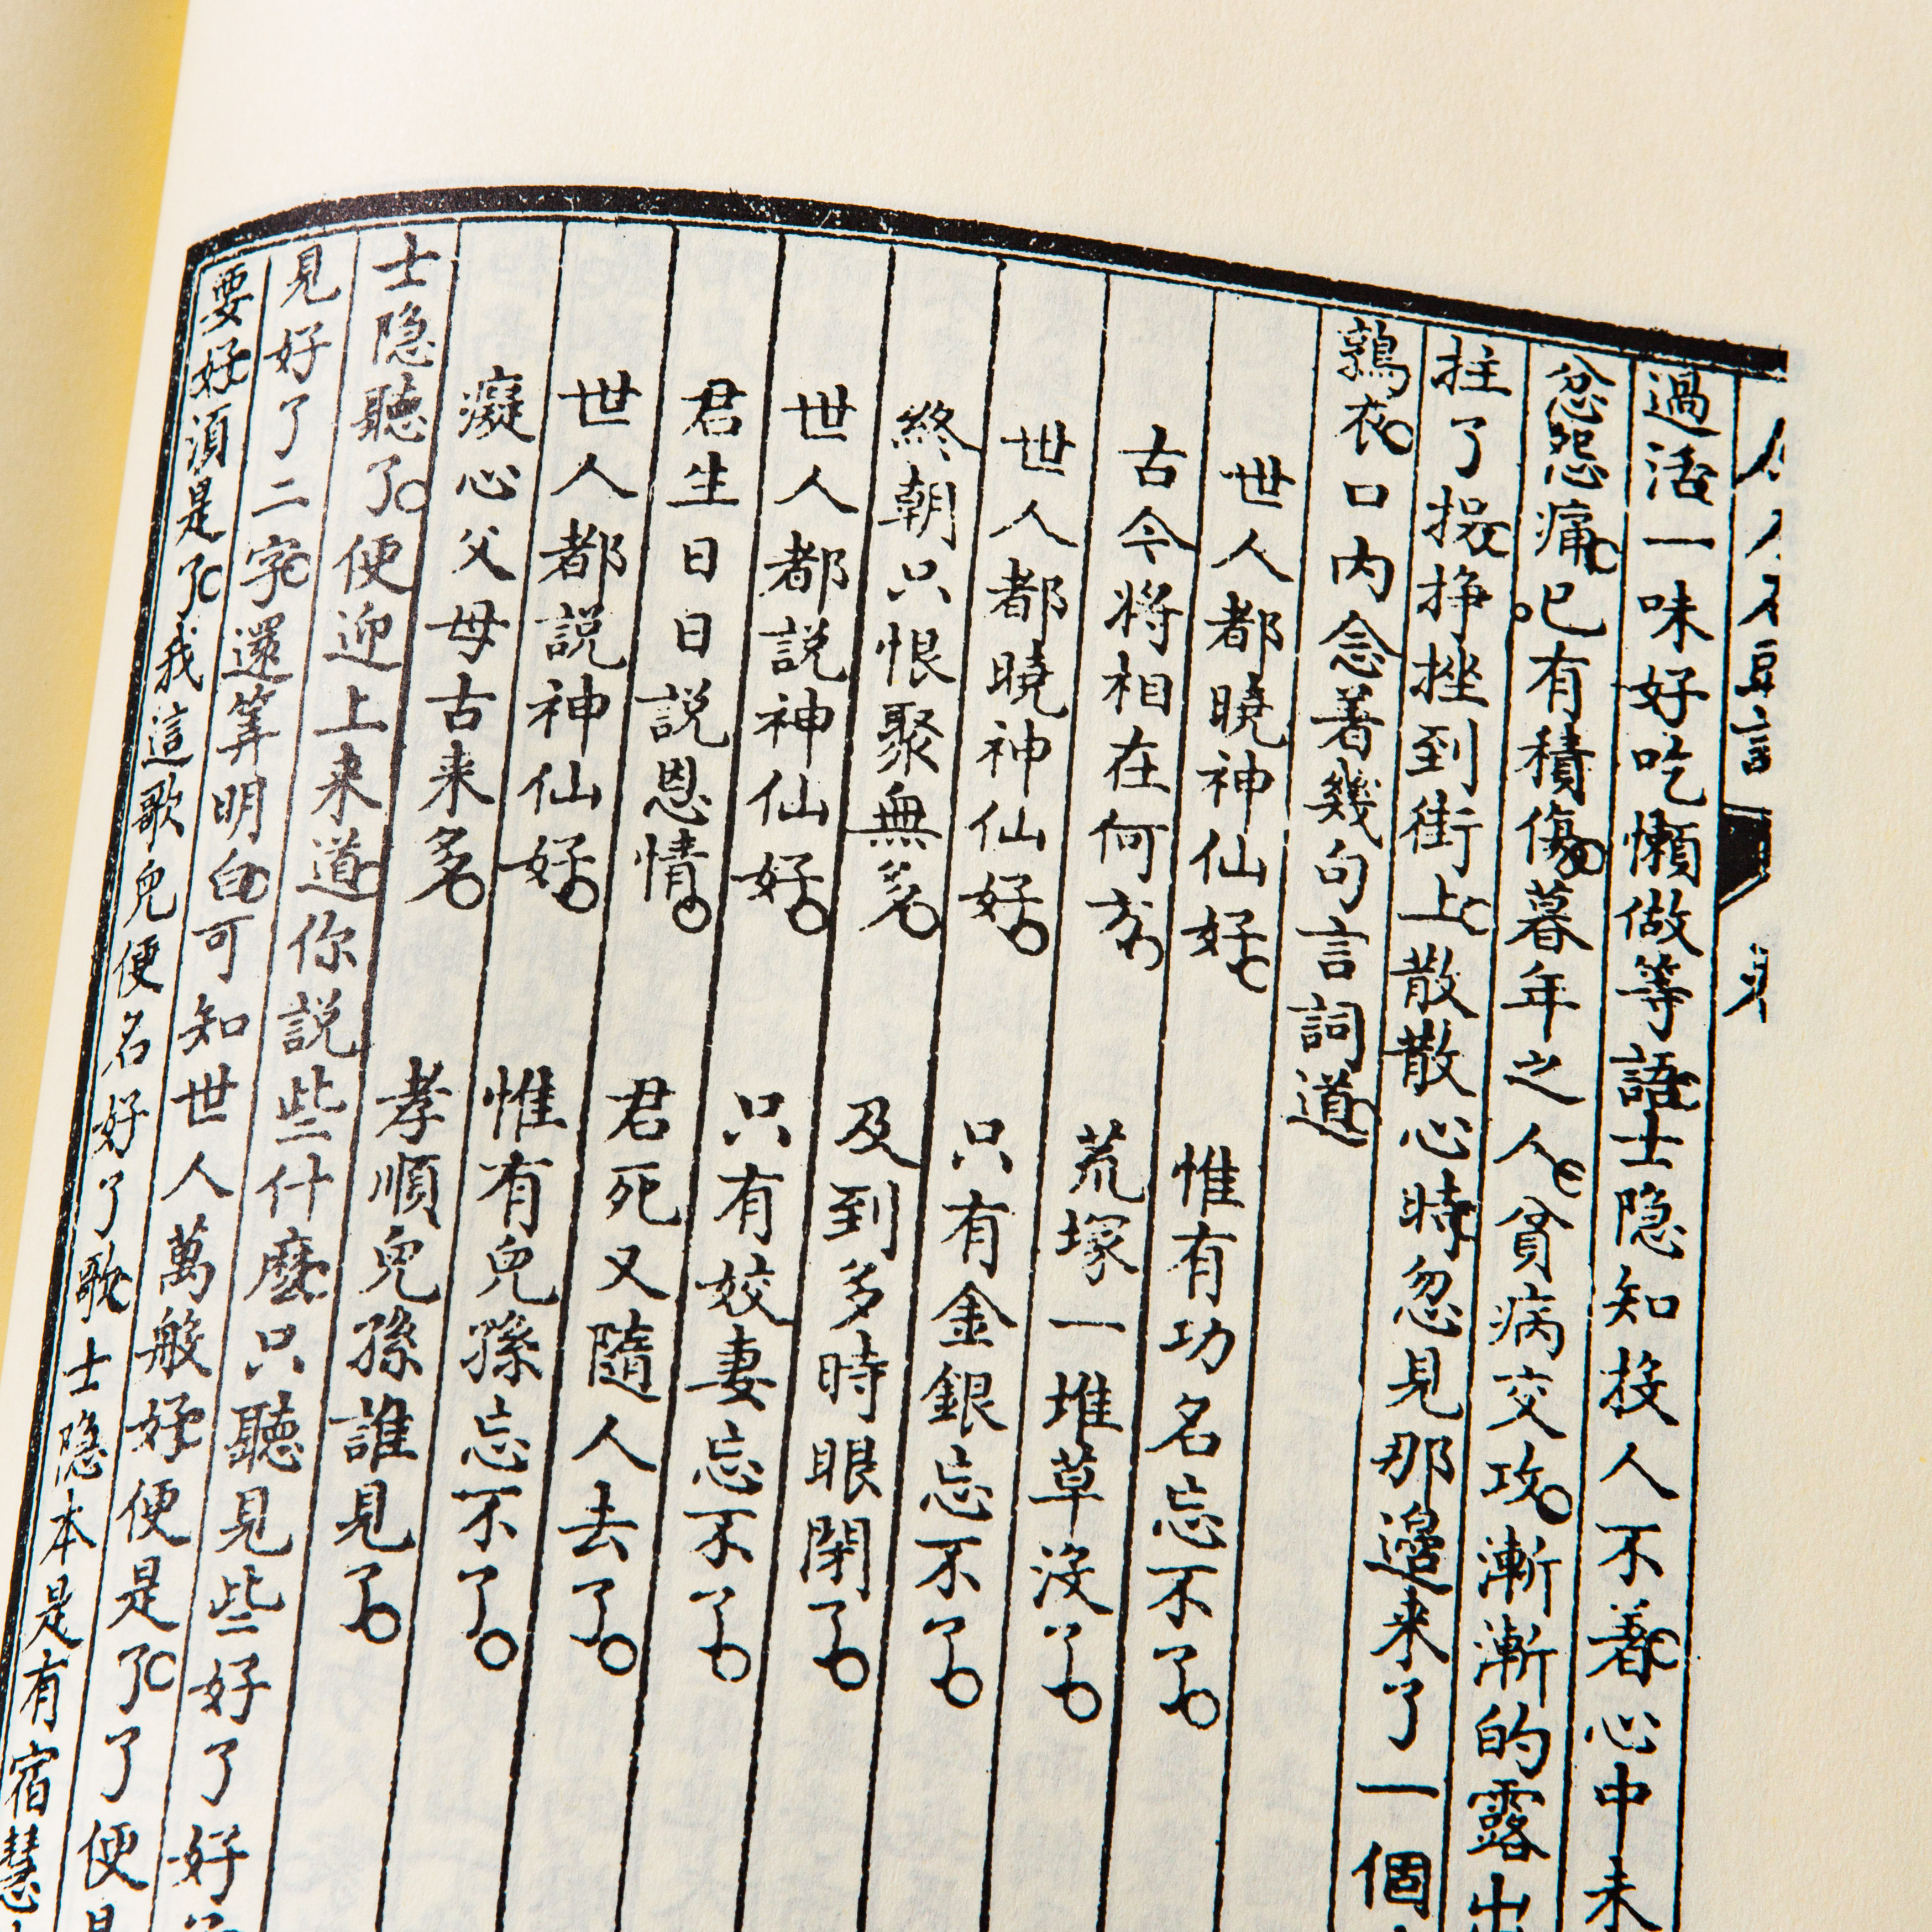 過活一味好吃懶做等語士隐知投人不着心中未
忿怨痛巳有積傷暮年之人貧病交攻漸漸的露出
拄了拐挣挫到街上散散心時忽見那邊来了一個
鶉衣口内念着幾句言詞道
世人都曉神仙好 惟有功名忘不了
古今將相在何方 荒塚一堆草沒了
世人都曉神仙好 只有金銀忘不了
終朝只恨聚無多 及到多時眼閉了
世人都説神仙好 只有姣妻忘不了
君生日日説恩情 君死又隨人去了
世人都説神仙好 惟有兒孫忘不了
癡心父母古来多 孝順兒孫誰見了
士隐聽了便迎上来道你説些什麽只聽見些好了好
見好了二字還筭明白可知世人萬般好便是了了便
要好須是了我這歌兒便名好了歌士隐本是有宿慧